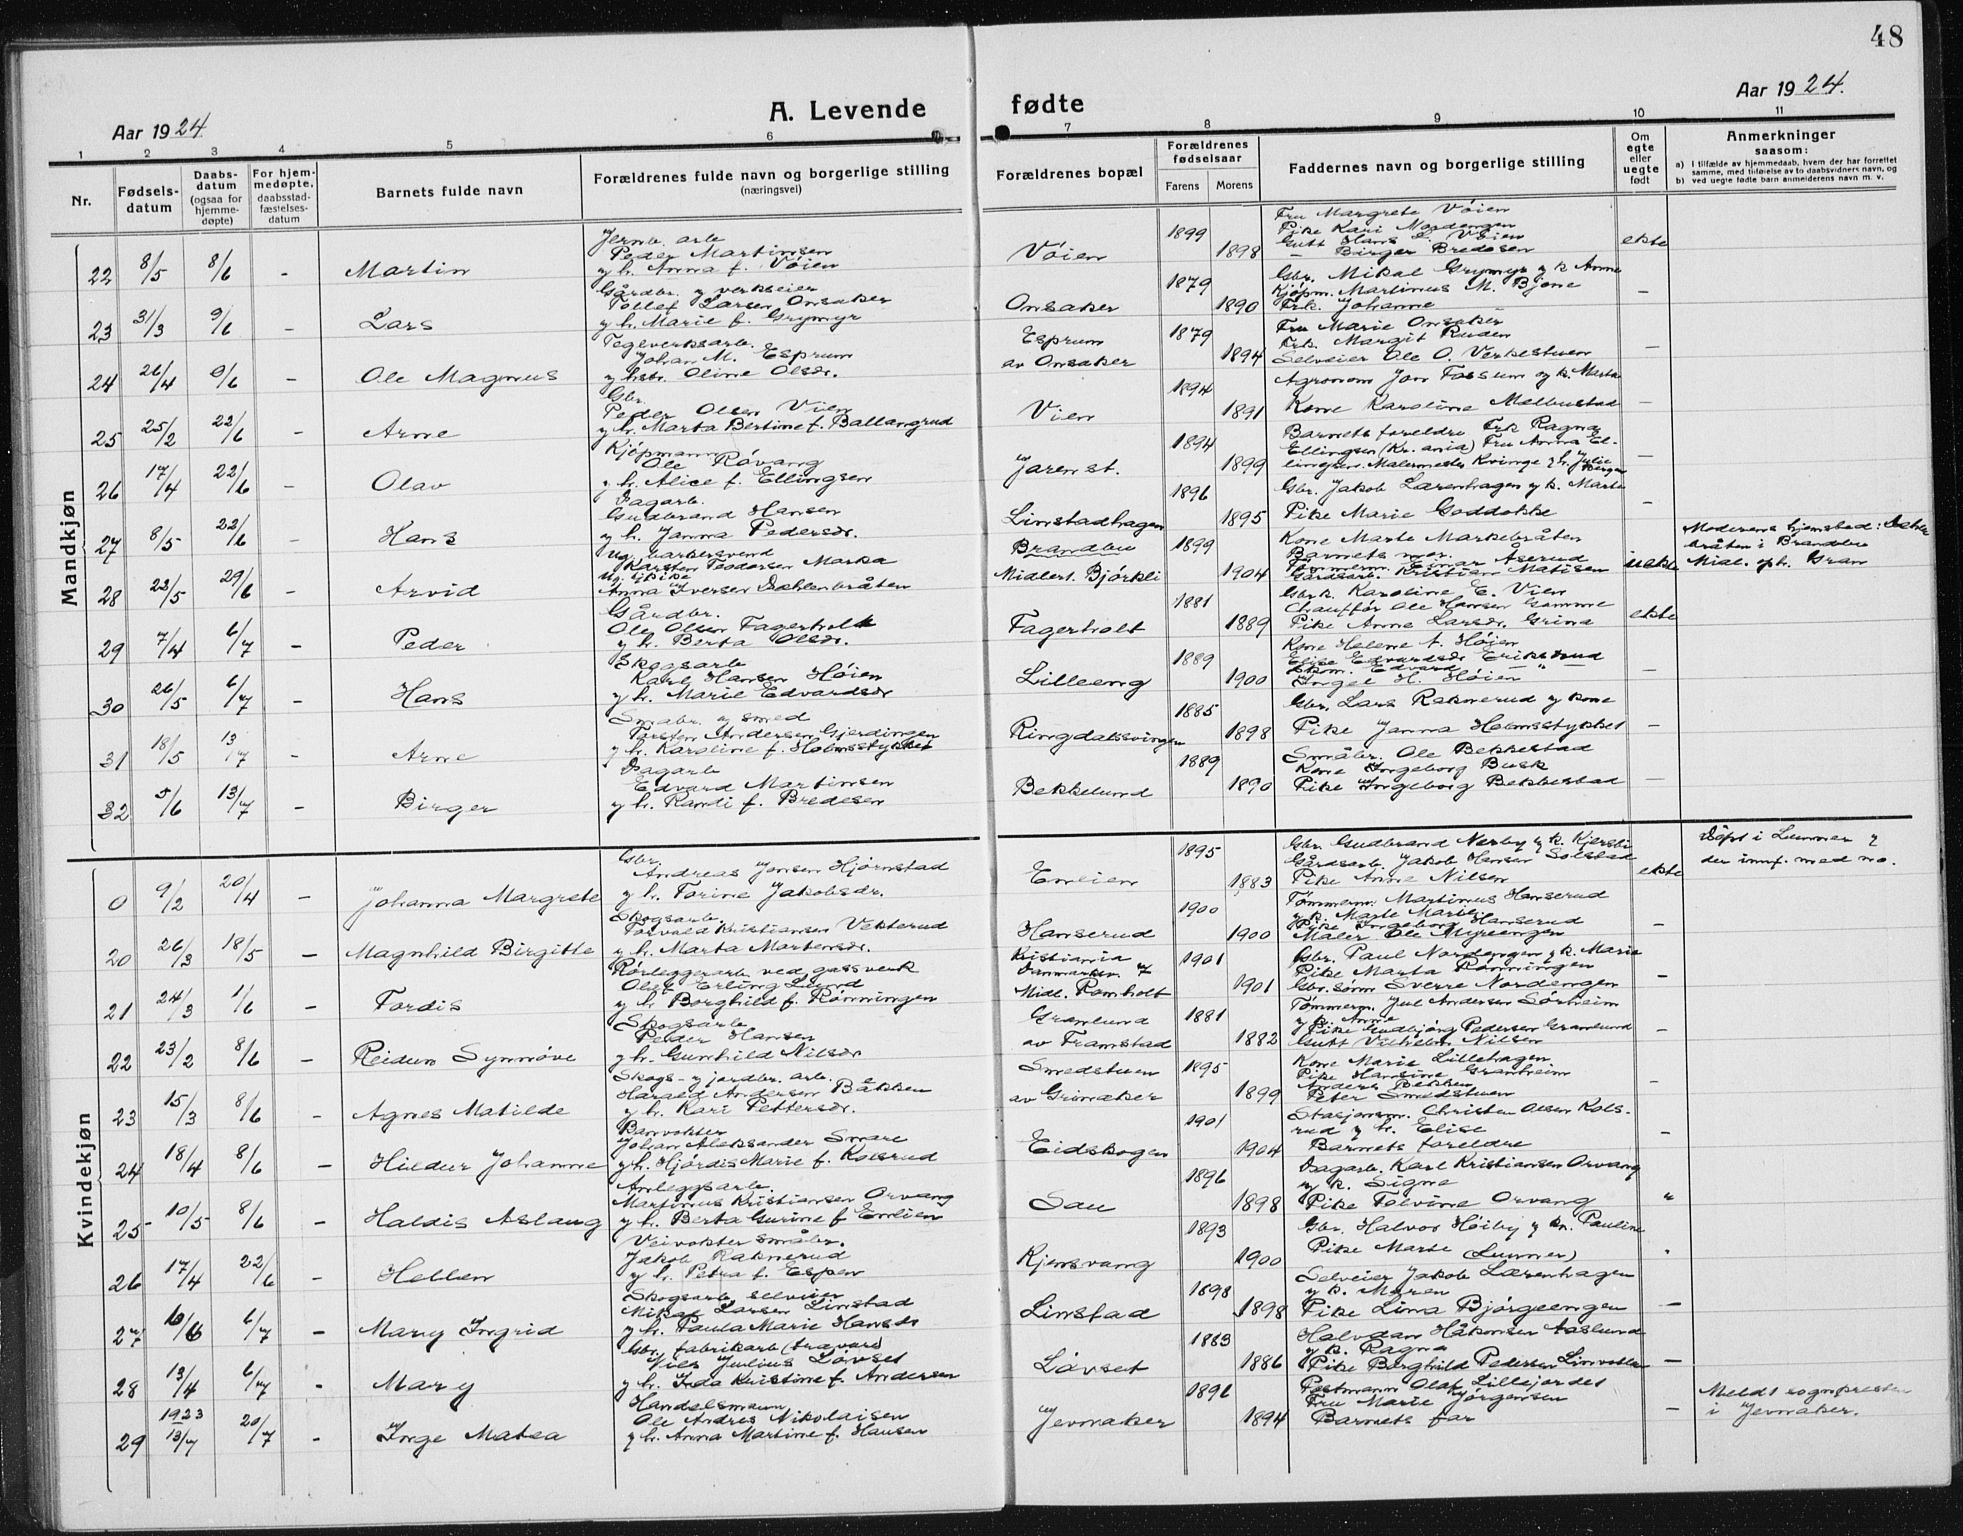 48
Aar 1924
A. Levende fødte
Aar 1924.
1 2 3 4 5 6 7 8 9 10 11
Nr.
Fødsels-
datum
Daabs-
datum
(ogsaa for
hjemme-
døpte)
For hjem-
medøpte,
daabsstad-
fæstelses-
datum
Barnets fulde navn
Forældrenes fulde navn og borgerlige stilling
(næringsvei)
Forældrenes bopæl
Forældrenes
fødselsaar
Farens Morens
Faddernes navn og borgerlige stilling
Om
egte
eller
uegte
født
Anmerkninger
saasom:
a) I tilfælde av hjemmedaab, hvem der har forrettet
samme, med tilføielse av to daabsvidners navn, og
b) ved uegte fødte barn anmelderens navn m. v.
Mandkjøn
22 8/5 8/6 - Martin
Jernb. arb.
Peder Martinsen
y h. Anna f. Vøien
Vøien
1899 1898
Fru Margrete Vøien
Pike Kari Nordengen
Gutt Hans L. Vøien
— Birger Bredesen
ekte
23 31/3 9/6 - Lars
Gårdbr. y verkseier
Tollef Larsen Onsaker
y h. Marie f. Grymyr
Onsaker
1879 1890
Gbr. Mikal Grymyr y k. Anne
Kjøpm. Martinus M. Bjone
Frk. Johanne —
—
24 26/4 9/6 - Ole Magnus
Teglverksarb.
Johan M. Esprum
y hstr. Oline Olsdr.
Esprum
av Onsaker
1879 1894
Fru Marie Onsaker
Frk. Margit Ruden
Selveier Ole O. Verkestuen
—
25 25/2 22/6 - Arne
Gbr.
Peder Olsen Vien
y h. Marta Bertine f. Ballangrud
Vien
1894 1891
Agronom Jon Fossum og k. Marta
Kone Karoline Melbustad
—
26 17/4 22/6 - Olav
Kjøpmann
Ole Røvang
y h. Alice f. Ellingsen
Jaren st.
1894 1899
Barnets foreldre Frk Ragna
Ellingsen (Kr.ania) Fru Anna El-
lingsen. Malermester Kvinge y h. Julie
Bergen
—
27 8/5 22/6 - Hans
Dagarb.
Gudbrand Hansen
y h. Janna Pedersdr.
Linstadhagen
1896 1895
Gbr. Jakob Lærenhagen y k. Marte
Pike Marie Goddokke
—
28 23/5 29/6 - Arvid
Ug. barbersvend
Karsten Teodorsen Marka
Ug. Pike
Anna Iversen Dahlenbråten
Brandbu
Midlert. Bjørkli
1899 1904
Kone Marte Markebråten
Barnets mor.
Tømmerm. Einar Åserud
Gårdsarb. Kristian Matisen
uekte
Moderens hjemstad: Dahlen
bråten i Brandbu
Midl. oph. Gran
29 7/4 6/7 - Peder
Gårdbr.
Ole Olsen Fagerholt
y h. Berta Olsdr.
Fagerholt
1881 1889
Gbrk. Karoline E. Vien
Chauffør Ole Hansen Gamme
Pike Anne Larsdr. Grina
ekte
30 26/5 6/7 - Hans
Skogsarb
Karl Hansen Høien
y h. Marie Edvardsdr
Lilleeng
1889 1900
Kone Helene A. Høien
Elise Edvardsdr Erikstrud
Skom. Edvard — " —
Ingel H. Høien
—
31 18/5 13/7 - Arne
Småbr. y smed
Torsten Andersen Gjerdingen
y h. Karoline f. Holmsstykket
Ringdalssvingen
1885 1898
Gbr. Lars Raknerud y kone
Pike Janna Holmsstykket
—
32 5/6 13/7 - Birger
Dagarb
Edvard Martinsen
y h. Randi f. Bredesen
Bekkelund
1889 1890
Småbr. Ole Bekkestad
Kone Ingeborg Busk
Pike Ingeborg Bekkestad
—
Kvindekjøn
0 9/2 20/4 - Johanna Margrete
Gbr.
Andreas Jonsen Hjørnstad
y h. Torine Jakobsdr.
Enlien
1895 1883
Gbr. Gudbrand Nerby y k. Kjersti
Gårdsarb. Jakob Hansen Solstad
Pike Anne Nilsen
ekte
Døpt i Lunner y
der innf. med no.
20 26/3 18/5 - Magnhild Birgitte
Skogsarb.
Torvald Kristiansen Vekterud
y h. Marta Martensdr.
Hanserud
1900 1900
Tømmerm. Martinus Hanserud
y k. Marte Marie
Pike Ingeborg Hanserud
Maler Ole Myreengen
—
21 24/3 1/6 - Tordis
Rørleggerarb. ved gassverk
Olaf Erling Lund
y h. Borghild f. Rønningen
Kristiania
Danmarksv. 7
Midl. Ramholt
1901 1901
Gbr. Paul Nordengen y k. Marie
Pike Marta Rønningen
Gbr.sønn Sverre Nordengen
—
22 23/2 8/6 - Reidun Synnøve
Skogsarb
Peder Hansen
y h. Gunhild Nilsdr
Granlund
av Framstad
1881 1882
Tømmerm. Jul Andersen Sørheim
y k. Anne
Pike Gudbjørg Pedersen Granlund
Gutt Vilhelm Nilsen
—
23 15/3 8/6 - Agnes Matilde
Skogs- y jordbr. arb.
Harald Andersen Bakken
y h. Kari Pettersdr.
Smedstuen
av Grinaker
1895 1899
Kone Marie Lillehagen
Pike Hansine Granheim
Anders Bekken
Peter Smedstuen
—
24 18/4 8/6 - Hildur Johanne
Banvokter
Johan Aleksander Smare
y h. Hjørdis Marie f. Kolsrud
Eidskogen
1901 1904
Stasjonsm. Christen Olsen Kols-
rud y h. Elise
Barnets foreldre
—
25 10/5 8/6 - Haldis Aslaug
Anleggsarb.
Martinus Kristiansen Orvang
y h. Berta Gurine f Enlien
Sau
1896 1898
Dagarb. Karl Kristiansen Orvang
y k. Signe
Pike Tolvine Orvang
"
26 17/4 22/6 - Hellen
Veivokter småbr.
Jakob Raknerud
y h. Petra f. Espen
Kjensvang
1893 1900
Gbr. Halvor Høiby y kn. Pauline
Pike Marte (Lunner)
"
27 10/6 6/7 - Mary Ingrid
Skogsarb selveier
Mikal Larsen Linstad
y h. Paula Marie Hansdr
Linstad
1898 1898
Selveier Jakob Lærenhagen
y k. Maren
Pike Lina Bjørgeengen
—
28 13/4 6/7 - Mary
Gbr. fabrikarb (travare)
Nils Julius Løvset
y h. Ida Kristine f. Andersen
Løvset
1883 1886
Halvdan Håkonsen Aaslund
y k. Ragna
Pike Borghild Pedersen Linvollen
—
29 1923 13/7 20/7 - Inge Matea
Handelsmann
Ole Andres Nikolaisen
y h. Anna Martine f. Hansen
Jevnaker
1896 1894
Postmann Olaf Lillejordet
Fru Marie Jørgensen
Barnets far
—
Meldt sognepresten
i Jevnaker.